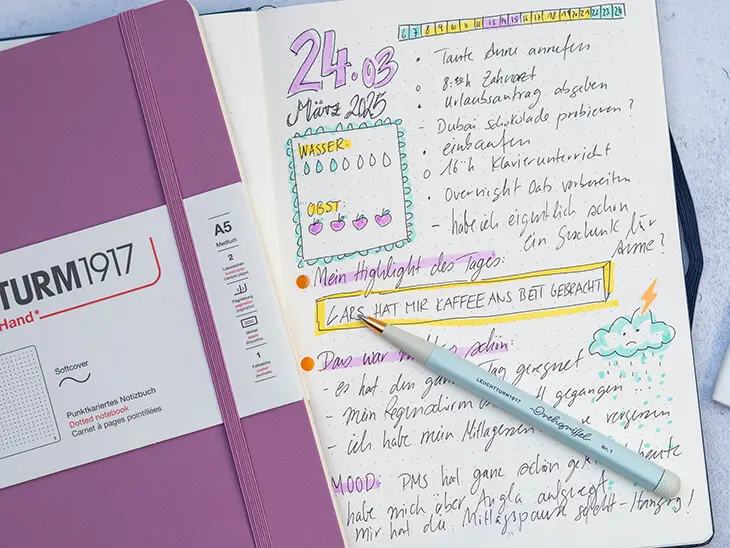 TURM1917
Hand*
Softcover
Punktkariertes Notizbuch
Dotted notebook
Carnet à pages pointillées
A5
Medium
2
1
24.03
März 2025
WASSER:
OBST:
6 7 8 9 10 11 12 13 14 15 16 17 18 19 20 21 22 23 24
• Tante Anne anrufen
o 8:30h Zahnarzt
• Urlaubsantrag abgeben
- Dubai schokolade probieren?
einkaufen
o 16h Klavierunterricht
• Overnight Oats vorbereiten
- habe ich eigentlich schon
ein Geschenk für
Anne?
Mein Highlight des Tages:
LARS HAT MIR KAFFEE ANS BETT GEBRACHT
Das war schön:
- es hat den Tag geregnet
- mein Regenschirm gegangen
- ich habe mein Mittagessen vergessen
LEUCHTTURM1917
Drehgriffel
Nr. 1
MOOD: PMS hat ganz schön heute
habe mich über Angela aufgeregt
mir hat die Mittagspause